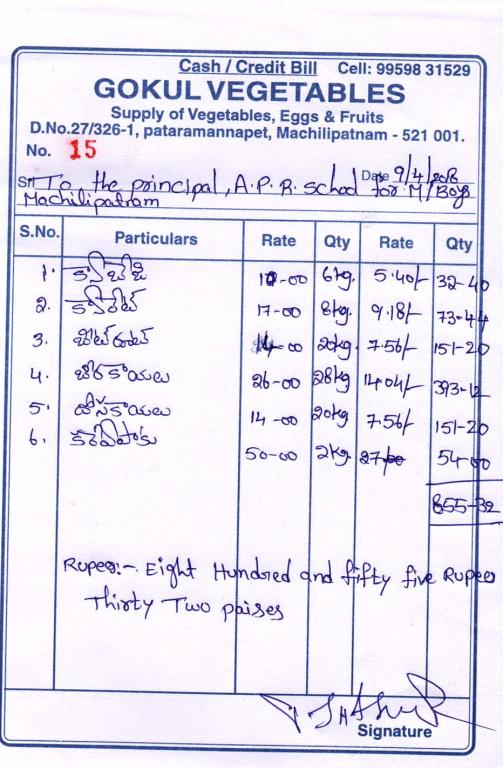 Cash / Credit Bill Cell: 99598 31529
GOKUL VEGETABLES
Supply of Vegetables, Eggs & Fruits
D.No.27/326-1, pataramannapet, Machilipatnam - 521 001.
No. 15
Date 9/4/2018
Sri To, the principal, A.P.R. school for M/Boys
Machilipatnam
S.No. Particulars Rate Qty Rate Qty
1. క్యాబేజి 10-00 6kg. 5.40/- 32-40
2. క్యారెట్ 17-00 8kg. 9.18/- 73-44
3. బీట్‌రూట్ 14-00 20kg. 7.56/- 151-20
4. బీరకాయలు 26-00 28kg 14.04/- 393-12
5. దోసకాయలు 14-00 20kg 7.56/- 151-20
6. కరివేపాకు 50-00 2kg. 27/- 54-00
855-32
Rupees:- Eight Hundred and fifty five Rupees
Thirty Two paises
Signature